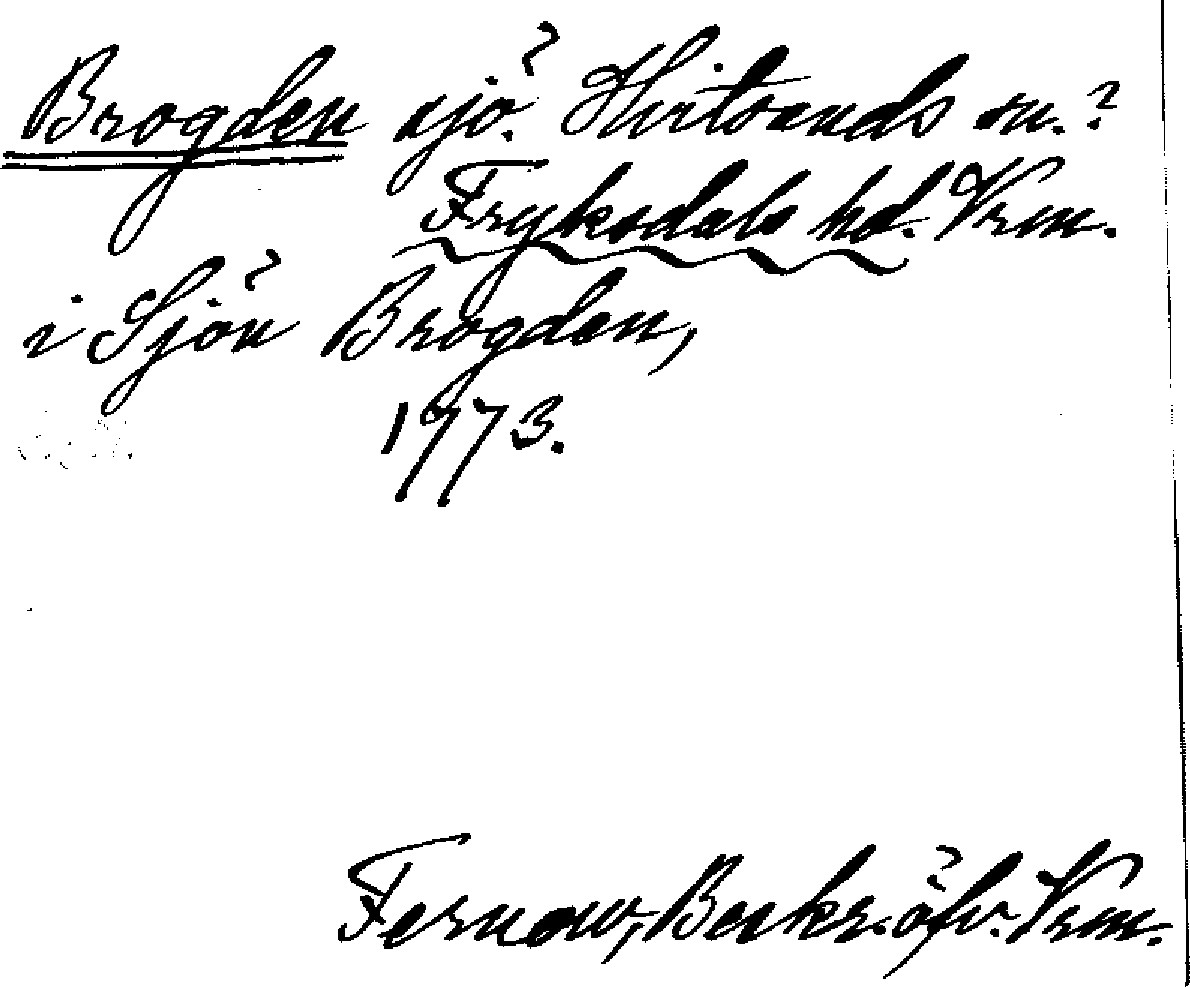 Brogden sjö. Hvitsands sn.?
Fryksdals hd. Vrm.
i Sjön Brogden,
1773.
Fernow, Beskr. öfv. Vrm.